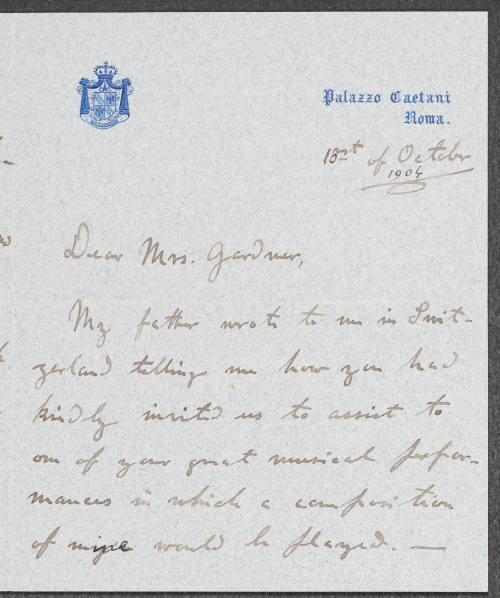 Palazzo Caetani
Roma.
13st of October
1904
Dear Mrs. Gardner,
My father wrote to me in Swit-
zerland telling me how you had
kindly invited us to assist to
one of your great musical perfor-
mances in which a composition
of mine would be played. —